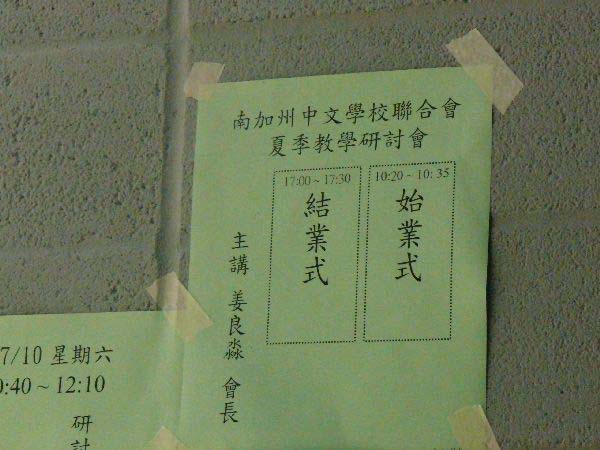 南加州中文學校聯合會
夏季教學研討會
10:20~10:35
始業式
17:00~17:30
結業式
主講 姜良淼 會長
7/10 星期六
:40~12:10
研討